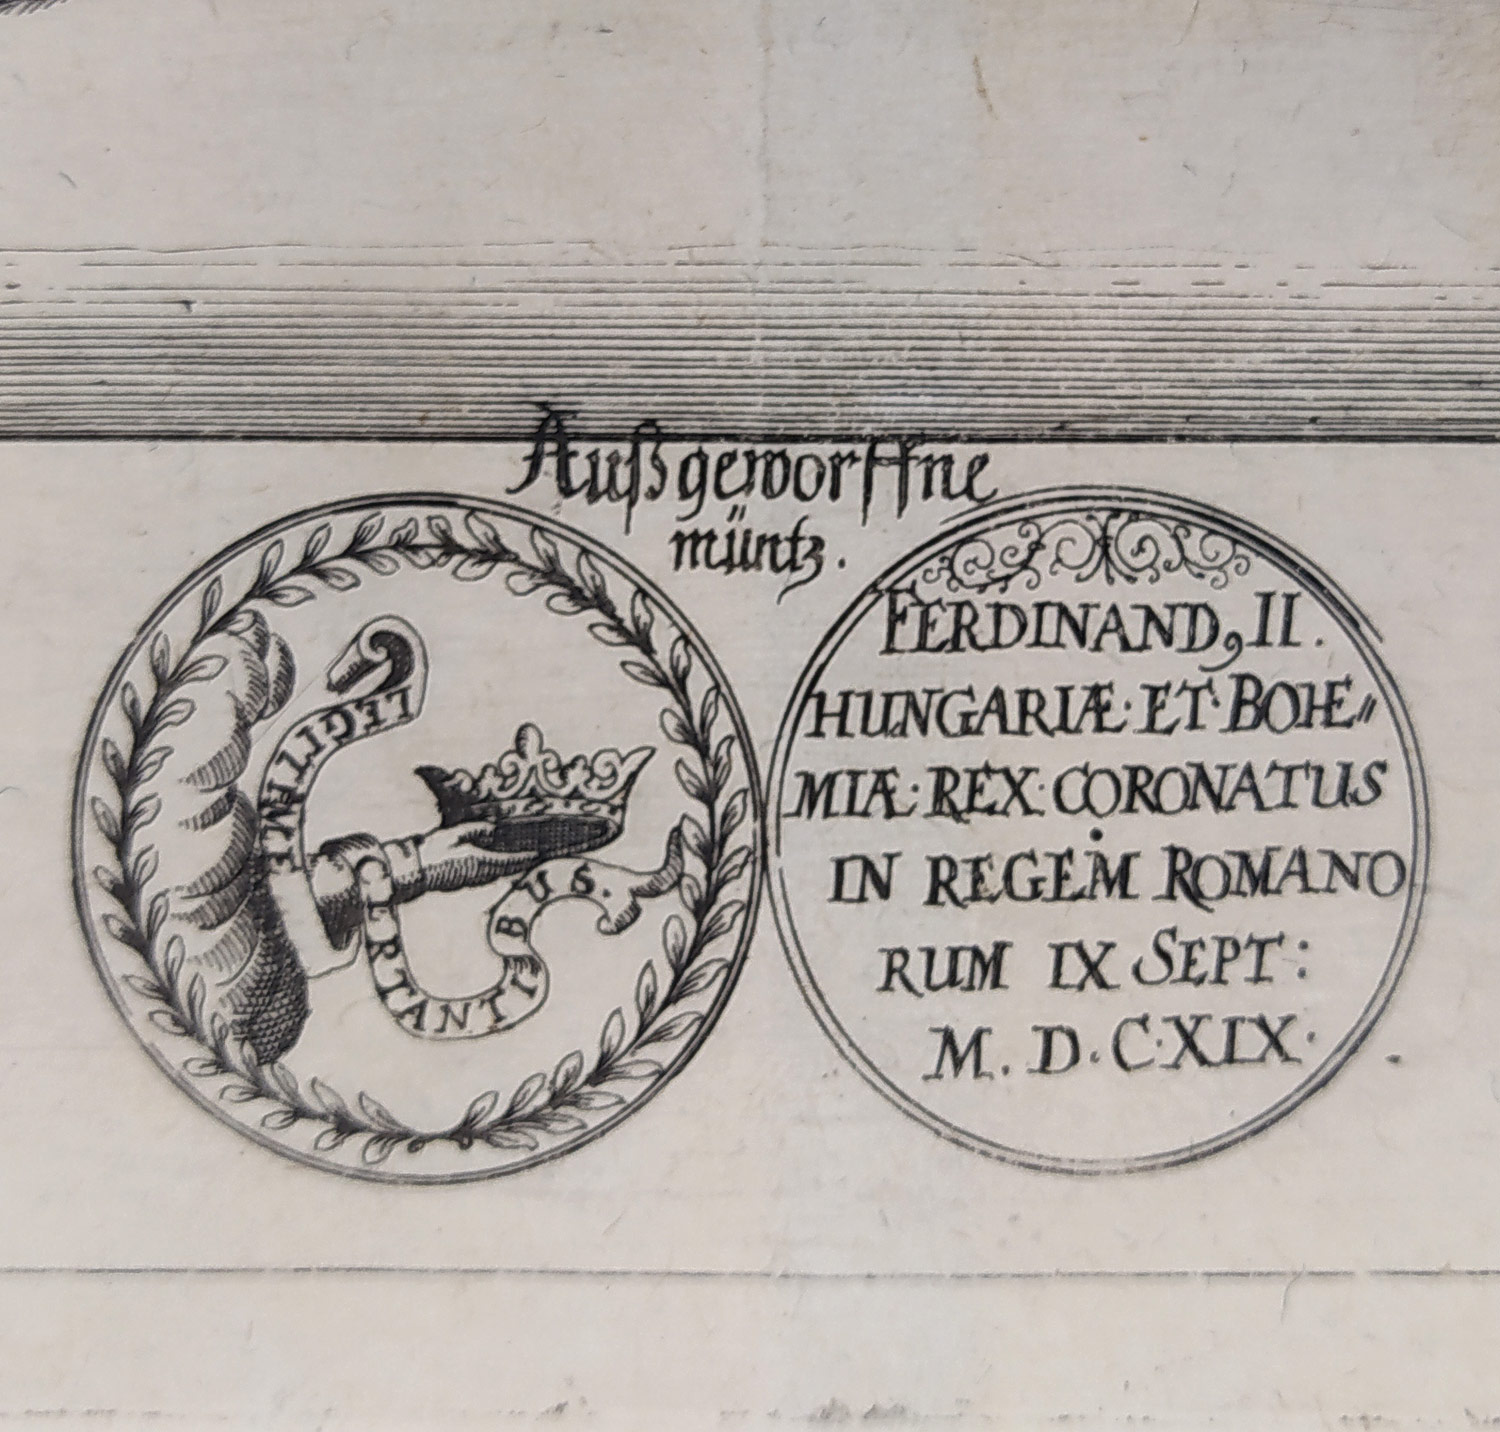 Außgeworffne
müntz.
LEGITIME
CERTANTIBUS.
FERDINAND9 II.
HUNGARIÆ· ET· BOHE〃
MIÆ· REX· CORONATUS
IN REGEM ROMANO
RUM IX SEPT:
M. D. C·XIX·